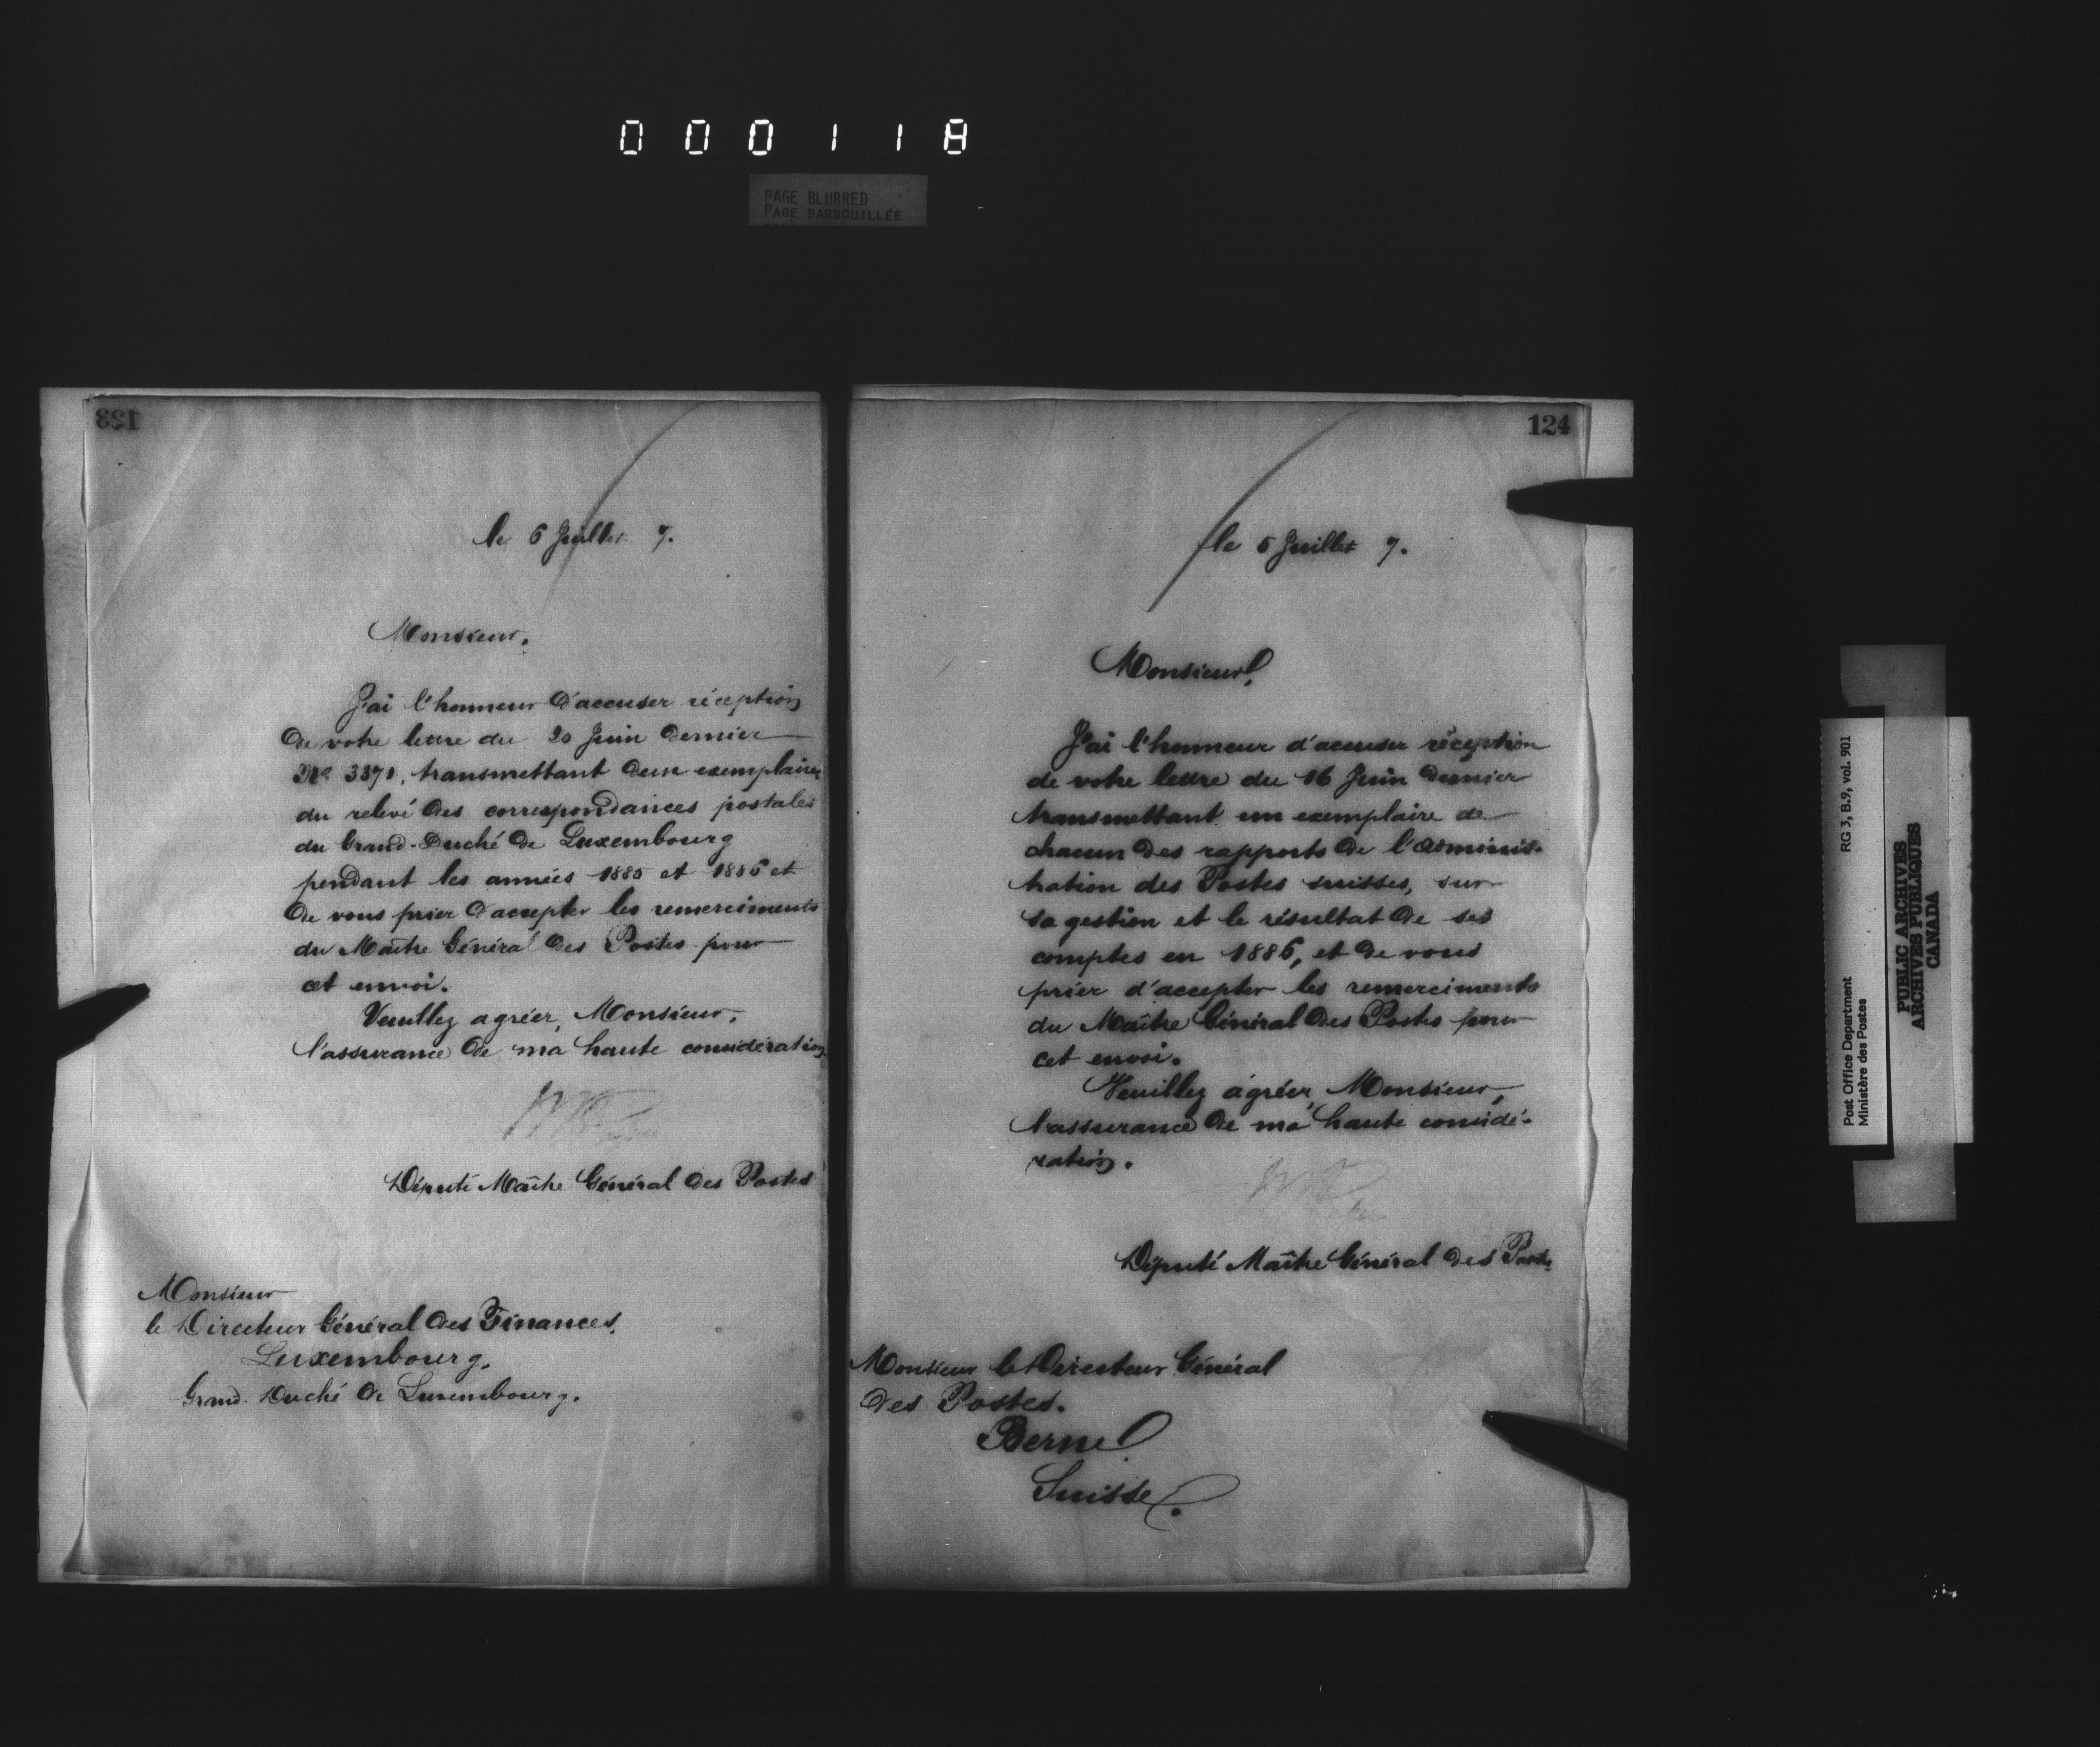 000118
PAGE BLURRED
PAGE BARBOUILLÉE
123
le 5 Juillet 7.
Monsieur,
J'ai l'honneur d'accuser réception
de votre lettre du 20 Juin dernier
No. 3371, transmettant deux exemplaires
du relevé des correspondances postales
du Grand-Duché de Luxembourg
pendant les années 1885 et 1886 et
de vous prier d'accepter les remerciments
du Maître Général des Postes pour
cet envoi.
Veuillez agréer, Monsieur,
l'assurance de ma haute considération
Député Maître Général des Postes
Monsieur
le Directeur Général des Finances,
Luxembourg,
Grand-Duché de Luxembourg.
124
le 5 Juillet 7.
Monsieur,
J'ai l'honneur d'accuser réception
de votre lettre du 16 Juin dernier
transmettant un exemplaire de
chacun des rapports de l'adminis-
tration des Postes suisses, sur
sa gestion et le résultat de ses
comptes en 1886, et de vous
prier d'accepter les remerciments
du Maître Général des Postes pour
cet envoi.
Veuillez agréer, Monsieur,
l'assurance de ma haute considé-
ration.
Député Maître Général des Postes
Monsieur le Directeur Général
des Postes.
Berne
Suisse.
Post Office Department RG 3, B.9, vol. 901
Ministère des Postes
PUBLIC ARCHIVES
ARCHIVES PUBLIQUES
CANADA